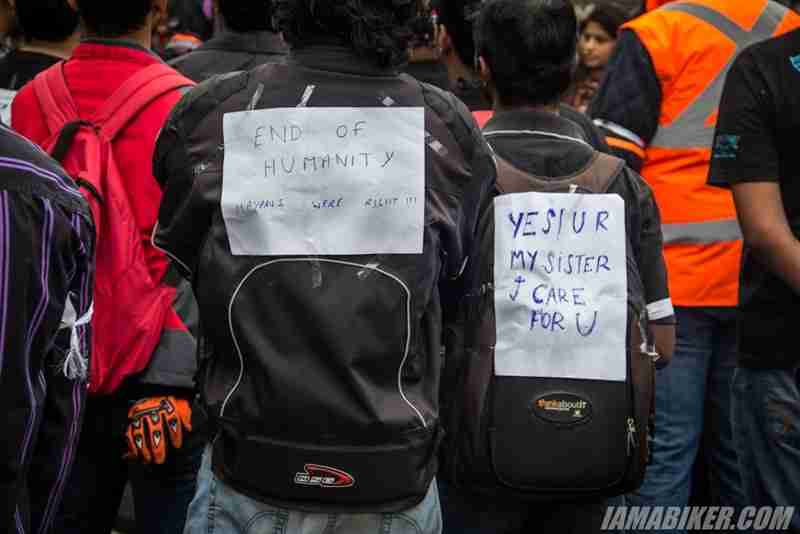 END OF
HUMANITY
MAYANS WERE RIGHT !!!
YES! U R
MY SISTER
I CARE
FOR U
thinkaboutIT
DSG
IAMABIKER.COM